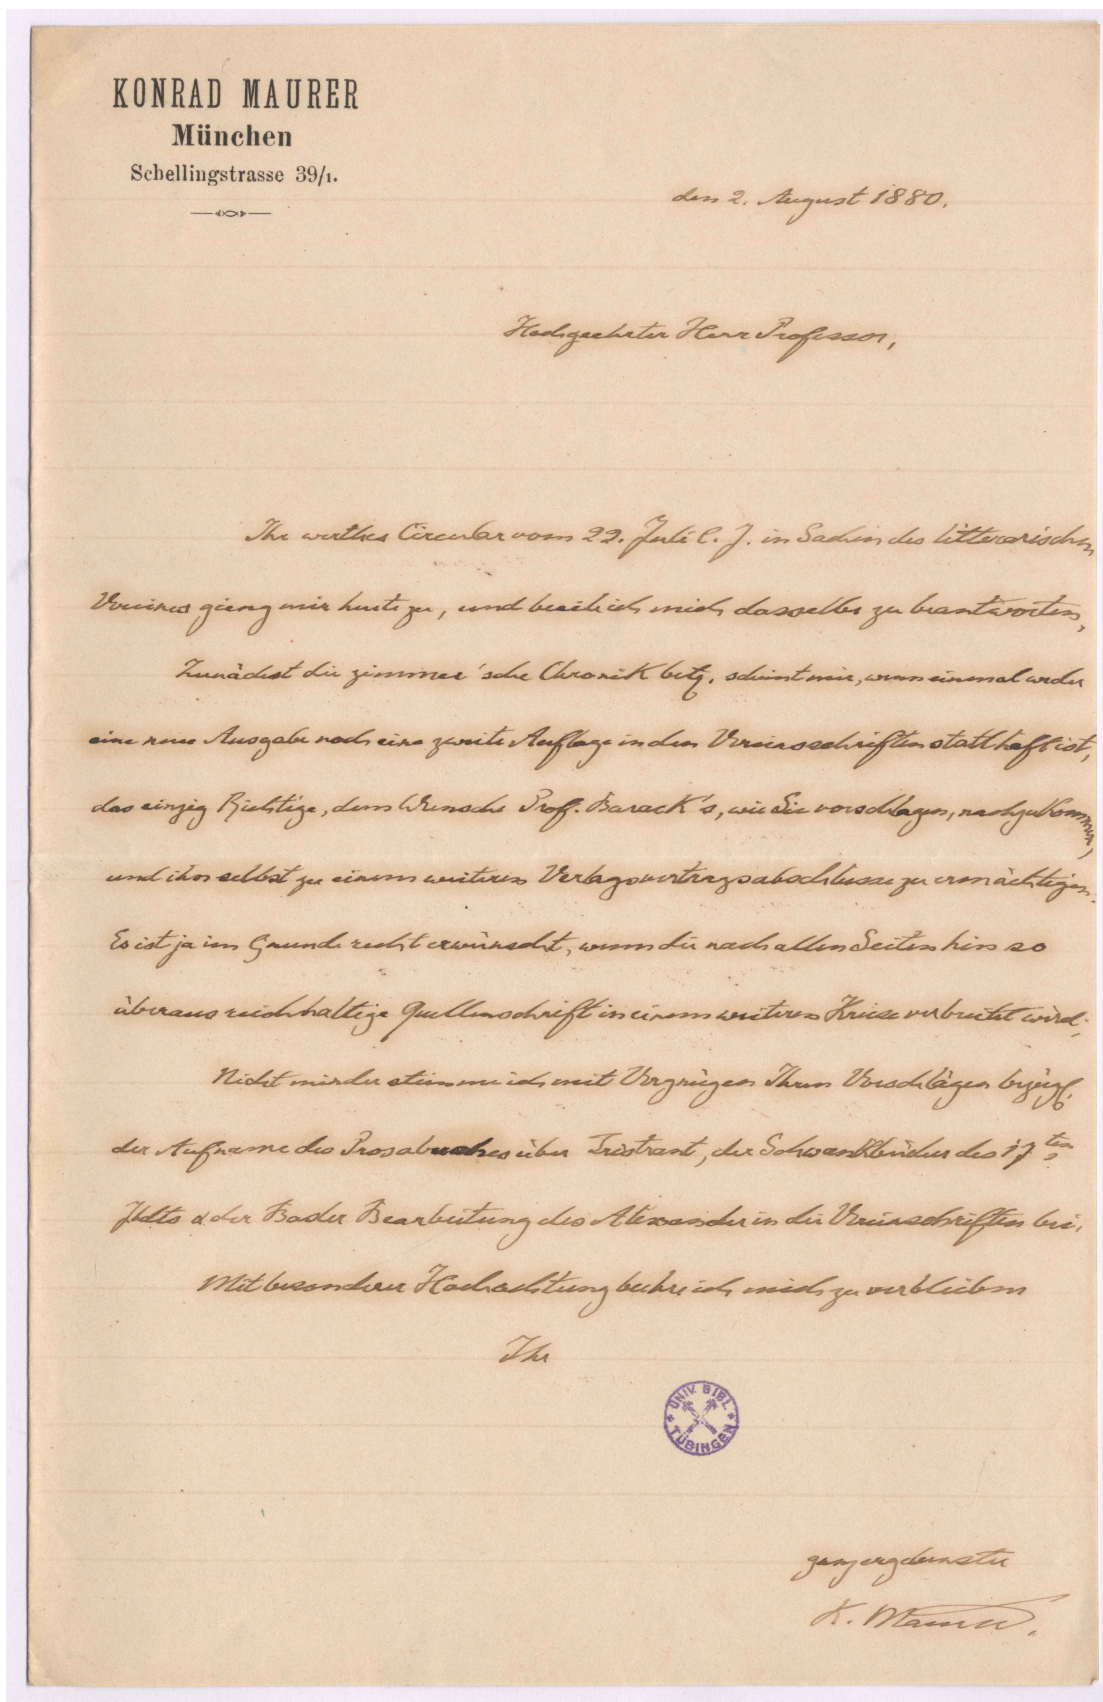 KONRAD MAURER
München
Schellingstrasse 39/1.
den 2. August 1880.
Hochgeehrter Herr Professor,
Ihr werthes Circular vom 22. Juli l. J. in Sachen des litterarischen
Vereines gieng mir heute zu, und beeile ich mich dasselbe zu beantworten,
Zunächst die zimmer'sche Chronik betr. scheint mir, wenn einmal weder
eine neue Ausgabe noch eine zweite Auflage in den Vereinsschriften statthaft ist,
das einzig Richtige, dem Wunsche Prof. Barack's, wie Sie vorschlagen, nachzukommen,
und ihn selbst zu einem weiteren Verlagsvertragsabschlusse zu ermächtigen.
Es ist ja im Grunde recht erwünscht, wenn die nach allen Seiten hin so
überaus reichhaltige Quellenschrift in einem weiteren Kreise verbreitet wird.
Nicht minder stimme ich mit Vergnügen Ihren Vorschlägen bezügl.
der Aufname des Prosabuches über Tristrant, der Schwankbücher des 17ten
Jhdts & der Basler Bearbeitung des Alexander in die Vereinsschriften bei.
Mit besonderer Hochachtung beehre ich mich zu verbleiben
Ihr
UNIV. BIBL. TÜBINGEN
ganz ergebenster
K. Maurer.